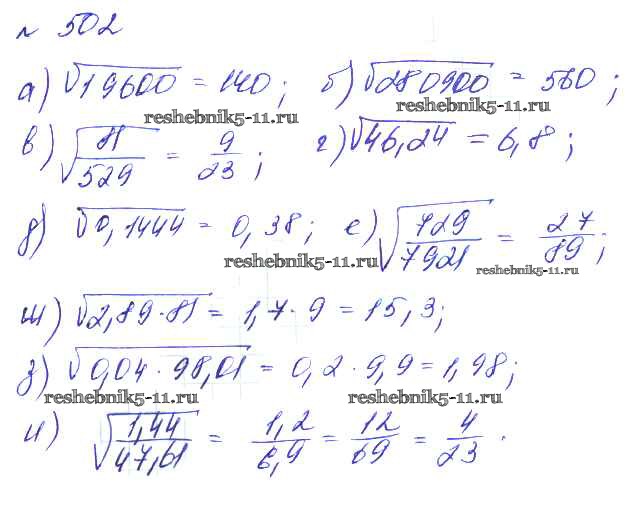 № 502
а) √19600 = 140; б) √280900 = 530;
reshebnik5-11.ru reshebnik5-11.ru
в) √81/529 = 9/23; г) √46,24 = 6,8;
д) √0,1444 = 0,38; е) √729/7921 = 27/89;
reshebnik5-11.ru reshebnik5-11.ru
ж) √2,89·81 = 1,7·9 = 15,3;
з) √0,04·98,01 = 0,2·9,9 = 1,98;
reshebnik5-11.ru reshebnik5-11.ru
и) √1,44/47,61 = 1,2/6,9 = 12/69 = 4/23.